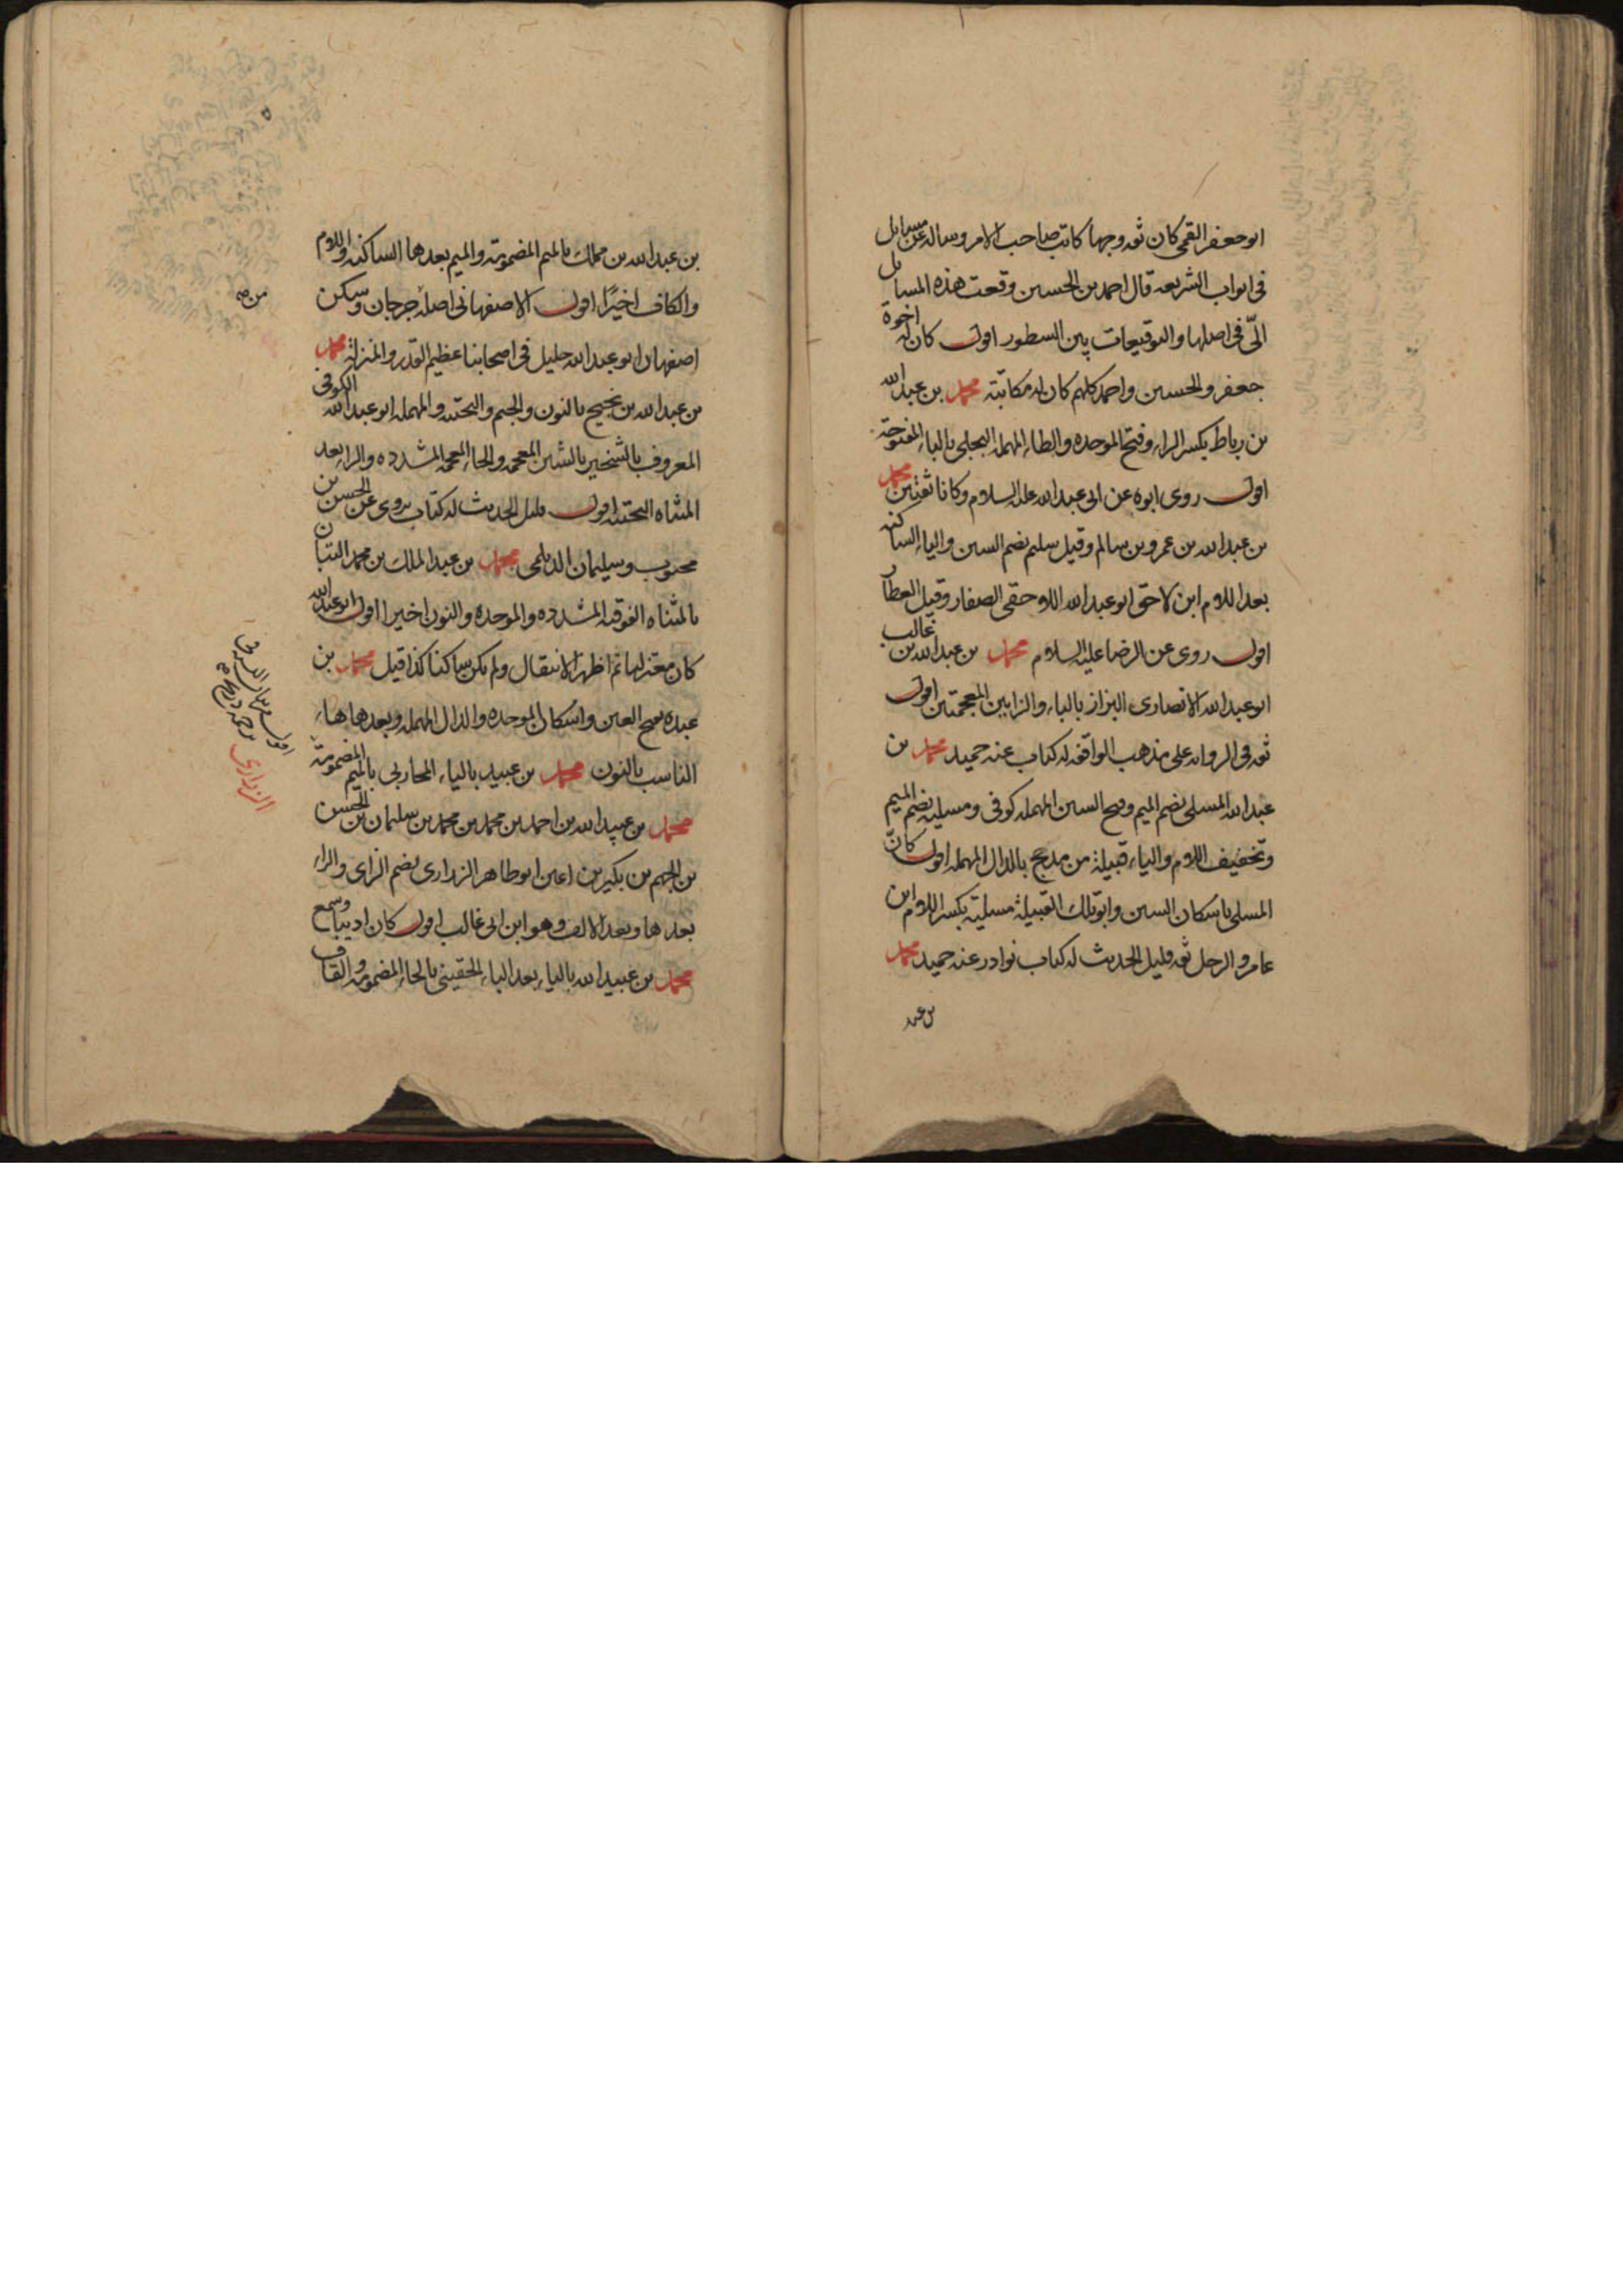 ابو جعفر القمى كان ثقه وجها كاتب صاحب الامر وساله عن مسايل
فى ابواب الشريعه قال احمد بن الحسين وقعت هذه المسايل
الىّ فى اصلها والتوقيعات بين السطور اقول كان له اخوة
جعفر والحسين واحمد كلهم كان له مكاتبة محمد بن عبدالله
بن رباط بكسر الراء وفتح الموحده والطاء المهمله البجلى بالباء المفتوحة
اقول روى ابوه عن ابى عبدالله عليه السلام وكانا ثقتين محمد
بن عبدالله بن عمرو بن سالم وقيل سليم بضم السين والياء الساكنه
بعد اللام ابن لاحق ابو عبدالله اللاحقى الصفار وقيل العطار
اقول روى عن الرضا عليه السلام محمد بن عبدالله بن غالب
ابو عبدالله الانصارى البزاز بالباء والزايين المعجمتين اقول
ثقه فى الروايه على مذهب الواقفه له كتاب عنه حميد محمد بن
عبدالله المسلى بضم الميم وفتح السين المهمله كوفى ومسليه بضم الميم
وتخفيف اللام والياء قبيلة من مذحج بالدال المهمله اقول كان
المسلى باسكان السين وابو تلك القبيلة مسلية بكسر اللام ابن
عامر والرجل ثقه قليل الحديث له كتاب نوادر عنه حميد محمد
بن عبد
بن عبدالله بن مملك بالميم المضمومة والميم بعدها الساكنه واللام
والكاف اخيرًا اقول الاصفهانى اصله جرجان وسكن
اصفهان ابو عبدالله جليل فى اصحابنا عظيم القدر والمنزلة محمد
بن عبدالله بن نجيح بالنون والجيم والتحتيه والمهمله ابو عبدالله الكوفى
المعروف بالشخير بالشين المعجمه والخاء المعجمه المشدده والراء بعد
المثناه التحتيه اقول قليل الحديث له كتاب يروى عن الحسن بن
محبوب وسليمان الديلمى محمد بن عبدالملك بن محمد التبان
بالمثناه الفوقيه المشدده والموحده والنون اخيرا اقول ابو عبدالله
كان معتزليا ثم اظهر الانتقال ولم يكن ساكنا كذا قيل محمد بن
عبده بفتح العين واسكان الموحده والدال المهمله وبعدها هاء
الناسب بالنون محمد بن عبيد بالياء المحاربى بالميم المضمومة
محمد بن عبيدالله بن احمد بن محمد بن محمد بن سليمان بن الحسن
بن الجهم بن بكير بن اعين ابو طاهر الزرارى بضم الزاى والراء
بعدها وبعد الالف وهو ابن ابى غالب اقول كان اديبا وسمع
محمد بن عبيدالله بالياء بعد الباء الحقينى بالحاء المضمومه والقاف
الزرارى